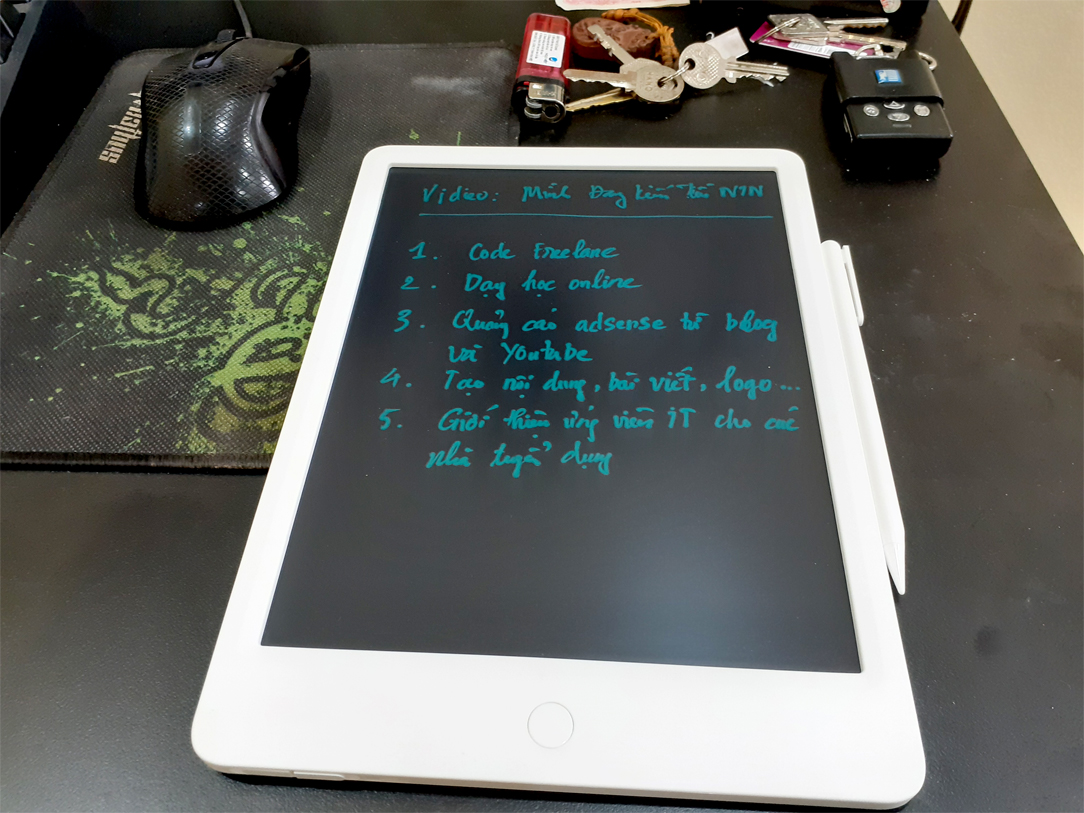 Video: Mình Đang kiếm tiền NTN
1. Code Freelane
2. Dạy học online
3. Quảng cáo adsense từ blog
và Youtube
4. Tạo nội dung, bài viết, logo...
5. Giới thiệu ứng viên IT cho các
nhà tuyển dụng